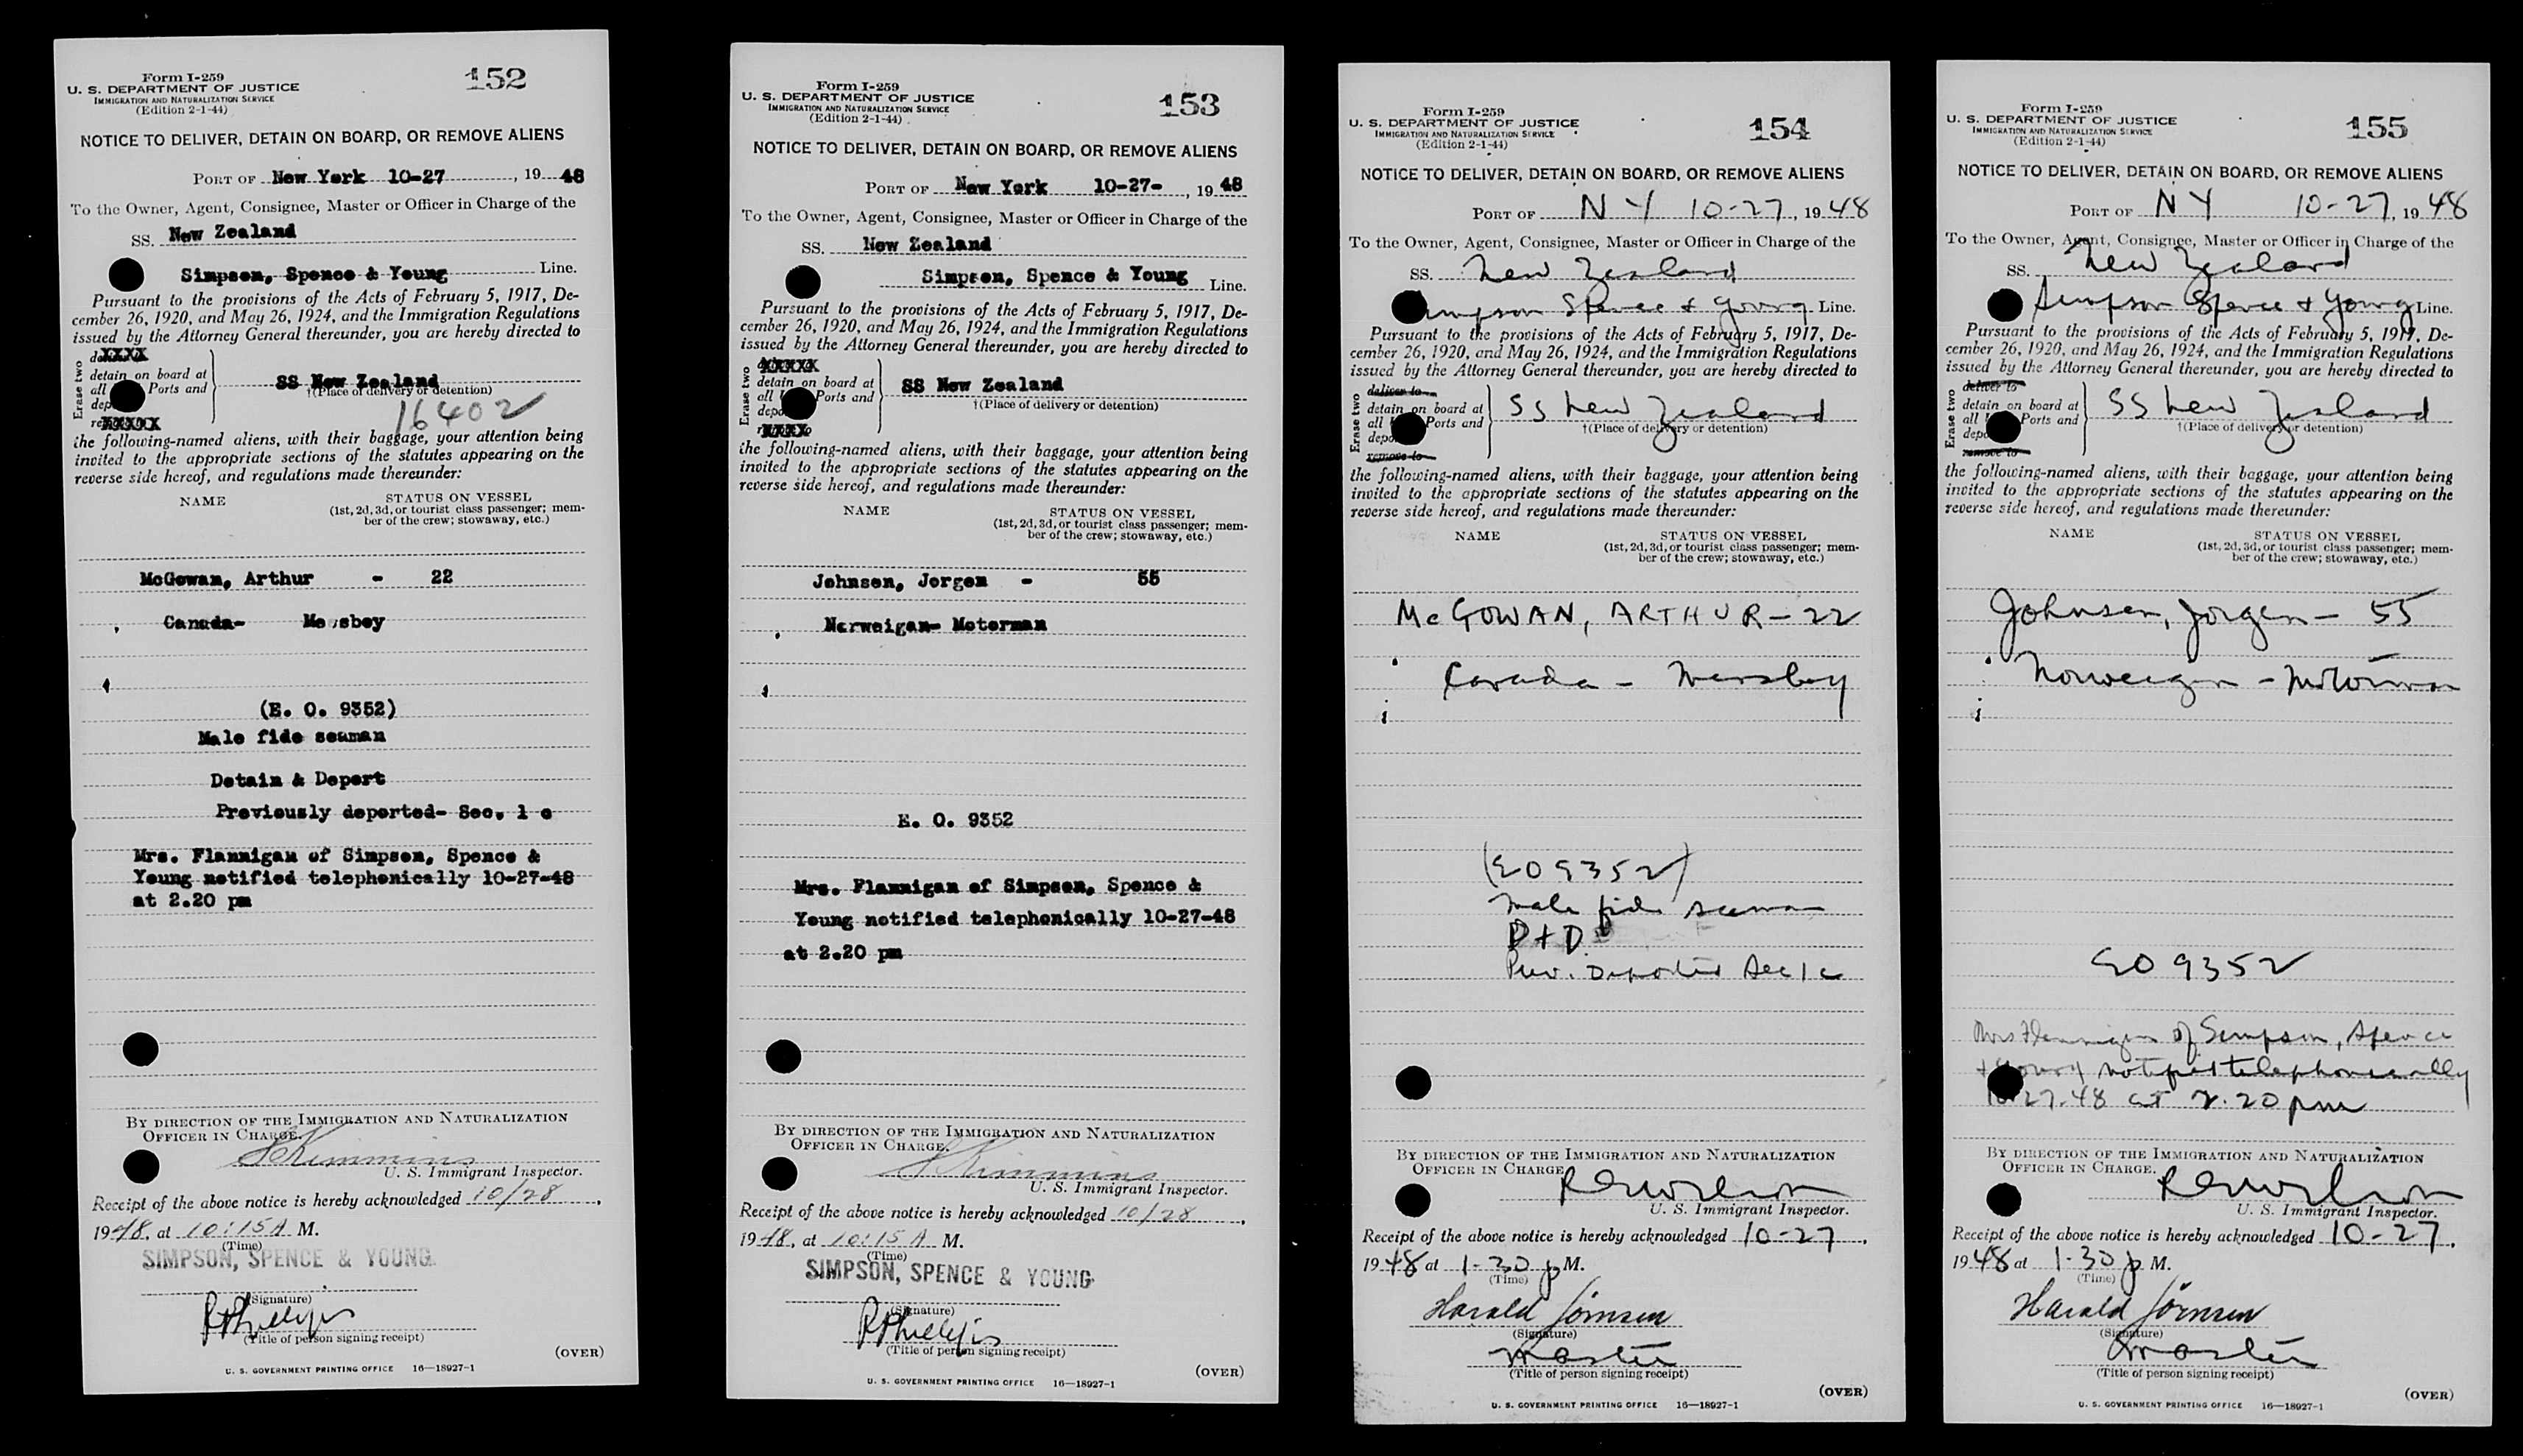 Form I-259
U. S. DEPARTMENT OF JUSTICE
IMMIGRATION AND NATURALIZATION SERVICE
(Edition 2-1-44)
152
NOTICE TO DELIVER, DETAIN ON BOARD, OR REMOVE ALIENS
PORT OF New York 10-27, 19 48
To the Owner, Agent, Consignee, Master or Officer in Charge of the
SS. New Zealand
Simpson, Spence & Young Line.
Pursuant to the provisions of the Acts of February 5, 1917, De-
cember 26, 1920, and May 26, 1924, and the Immigration Regulations
issued by the Attorney General thereunder, you are hereby directed to
Erase two
XXXX
detain on board at
all Ports and
dep
XXXXX
SS New Zealand
†(Place of delivery or detention)
16402
the following-named aliens, with their baggage, your attention being
invited to the appropriate sections of the statutes appearing on the
reverse side hereof, and regulations made thereunder:
NAME
STATUS ON VESSEL
(1st, 2d, 3d, or tourist class passenger; mem-
ber of the crew; stowaway, etc.)
McGowan, Arthur - 22
Canada- Messboy
(E. O. 9352)
Male fide seaman
Detain & Deport
Previously deported- Sec. 1 c
Mrs. Flannigan of Simpson, Spence &
Young notified telephonically 10-27-48
at 2.20 pm
BY DIRECTION OF THE IMMIGRATION AND NATURALIZATION
OFFICER IN CHARGE.
Kimmins
U. S. Immigrant Inspector.
Receipt of the above notice is hereby acknowledged 10/28,
1948, at 10:15 A M.
(Time)
SIMPSON, SPENCE & YOUNG
(Signature)
R Phillips
(Title of person signing receipt)
(OVER)
U. S. GOVERNMENT PRINTING OFFICE 16—18927-1
Form I-259
U. S. DEPARTMENT OF JUSTICE
IMMIGRATION AND NATURALIZATION SERVICE
(Edition 2-1-44)
153
NOTICE TO DELIVER, DETAIN ON BOARD, OR REMOVE ALIENS
PORT OF New York 10-27-, 19 48
To the Owner, Agent, Consignee, Master or Officer in Charge of the
SS. New Zealand
Simpson, Spence & Young Line.
Pursuant to the provisions of the Acts of February 5, 1917, De-
cember 26, 1920, and May 26, 1924, and the Immigration Regulations
issued by the Attorney General thereunder, you are hereby directed to
Erase two
XXXXX
detain on board at
all Ports and
depo
XXXX
SS New Zealand
†(Place of delivery or detention)
the following-named aliens, with their baggage, your attention being
invited to the appropriate sections of the statutes appearing on the
reverse side hereof, and regulations made thereunder:
NAME
STATUS ON VESSEL
(1st, 2d, 3d, or tourist class passenger; mem-
ber of the crew; stowaway, etc.)
Johnsen, Jorgen - 55
Norweigan- Motorman
E. O. 9352
Mrs. Flannigan of Simpson, Spence &
Young notified telephonically 10-27-48
at 2.20 pm
BY DIRECTION OF THE IMMIGRATION AND NATURALIZATION
OFFICER IN CHARGE.
Kimmins
U. S. Immigrant Inspector.
Receipt of the above notice is hereby acknowledged 10/28,
1948, at 10:15 A M.
(Time)
SIMPSON, SPENCE & YOUNG
(Signature)
R Phillips
(Title of person signing receipt)
(OVER)
U. S. GOVERNMENT PRINTING OFFICE 16—18927-1
Form I-259
U. S. DEPARTMENT OF JUSTICE
IMMIGRATION AND NATURALIZATION SERVICE
(Edition 2-1-44)
154
NOTICE TO DELIVER, DETAIN ON BOARD, OR REMOVE ALIENS
PORT OF N Y 10-27, 1948
To the Owner, Agent, Consignee, Master or Officer in Charge of the
SS. New Zealand
Simpson Spence + Young Line.
Pursuant to the provisions of the Acts of February 5, 1917, De-
cember 26, 1920, and May 26, 1924, and the Immigration Regulations
issued by the Attorney General thereunder, you are hereby directed to
Erase two
deliver to
detain on board at
all Ports and
depo
remove to
SS New Zealand
†(Place of delivery or detention)
the following-named aliens, with their baggage, your attention being
invited to the appropriate sections of the statutes appearing on the
reverse side hereof, and regulations made thereunder:
NAME
STATUS ON VESSEL
(1st, 2d, 3d, or tourist class passenger; mem-
ber of the crew; stowaway, etc.)
McGOWAN, ARTHUR - 22
Canada - Messboy
(EO 9352)
Male fide seaman
D+D
Prev. Deported Sec 1 c
BY DIRECTION OF THE IMMIGRATION AND NATURALIZATION
OFFICER IN CHARGE
U. S. Immigrant Inspector.
Receipt of the above notice is hereby acknowledged 10-27,
1948 at 1-30 p M.
(Time)
Harald Jörnsen
(Signature)
Master
(Title of person signing receipt)
(OVER)
U. S. GOVERNMENT PRINTING OFFICE 16—18927-1
Form I-259
U. S. DEPARTMENT OF JUSTICE
IMMIGRATION AND NATURALIZATION SERVICE
(Edition 2-1-44)
155
NOTICE TO DELIVER, DETAIN ON BOARD, OR REMOVE ALIENS
PORT OF N Y 10-27, 1948
To the Owner, Agent, Consignee, Master or Officer in Charge of the
SS. New Zealand
Simpson Spence + Young Line.
Pursuant to the provisions of the Acts of February 5, 1917, De-
cember 26, 1920, and May 26, 1924, and the Immigration Regulations
issued by the Attorney General thereunder, you are hereby directed to
Erase two
deliver to
detain on board at
all Ports and
depo
remove to
SS New Zealand
†(Place of delivery or detention)
the following-named aliens, with their baggage, your attention being
invited to the appropriate sections of the statutes appearing on the
reverse side hereof, and regulations made thereunder:
NAME
STATUS ON VESSEL
(1st, 2d, 3d, or tourist class passenger; mem-
ber of the crew; stowaway, etc.)
Johnsen, Jorgen - 55
Norweigan - Motorman
EO 9352
Mrs Flannigan of Simpson, Spence
+ Young notified telephonically
10-27-48 at 2.20 pm
BY DIRECTION OF THE IMMIGRATION AND NATURALIZATION
OFFICER IN CHARGE.
U. S. Immigrant Inspector.
Receipt of the above notice is hereby acknowledged 10-27,
1948 at 1-30 p M.
(Time)
Harald Jörnsen
(Signature)
Master
(Title of person signing receipt)
(OVER)
U. S. GOVERNMENT PRINTING OFFICE 16—18927-1